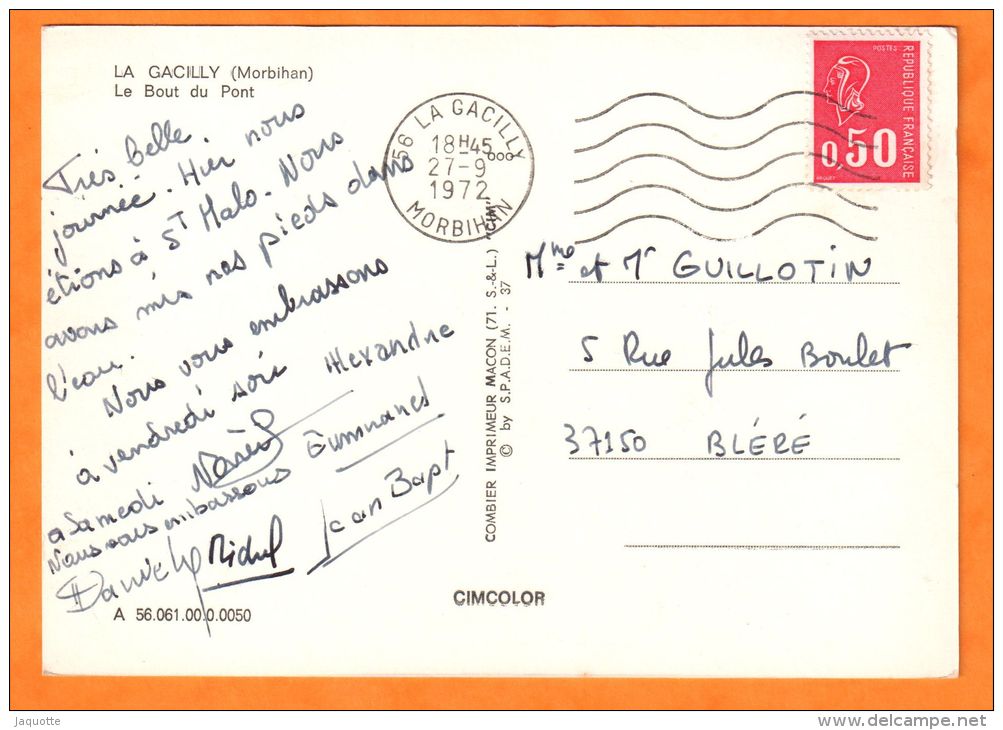 LA GACILLY (Morbihan)
Le Bout du Pont
Très belle
journée. Hier nous
étions à St Malo. Nous
avons mis nos pieds dans
l'eau.
Nous vous embrassons
à vendredi soir Alexandre
a Samedi
Nous vous embassons
Daniel Michel Jean Bapt
A 56.061.00.0.0050
56 LA GACILLY
18H45
27-9
1972
MORBIHAN
COMBIER IMPRIMEUR MACON (71. S.-&-L.) "CIM"
© by S.P.A.D.E.M. - 37
CIMCOLOR
POSTES
REPUBLIQUE FRANÇAISE
0,50
Mme et Mr GUILLOTIN
5 Rue Jules Boulet
37150 BLÉRÉ
Jaquotte
www.delcampe.net